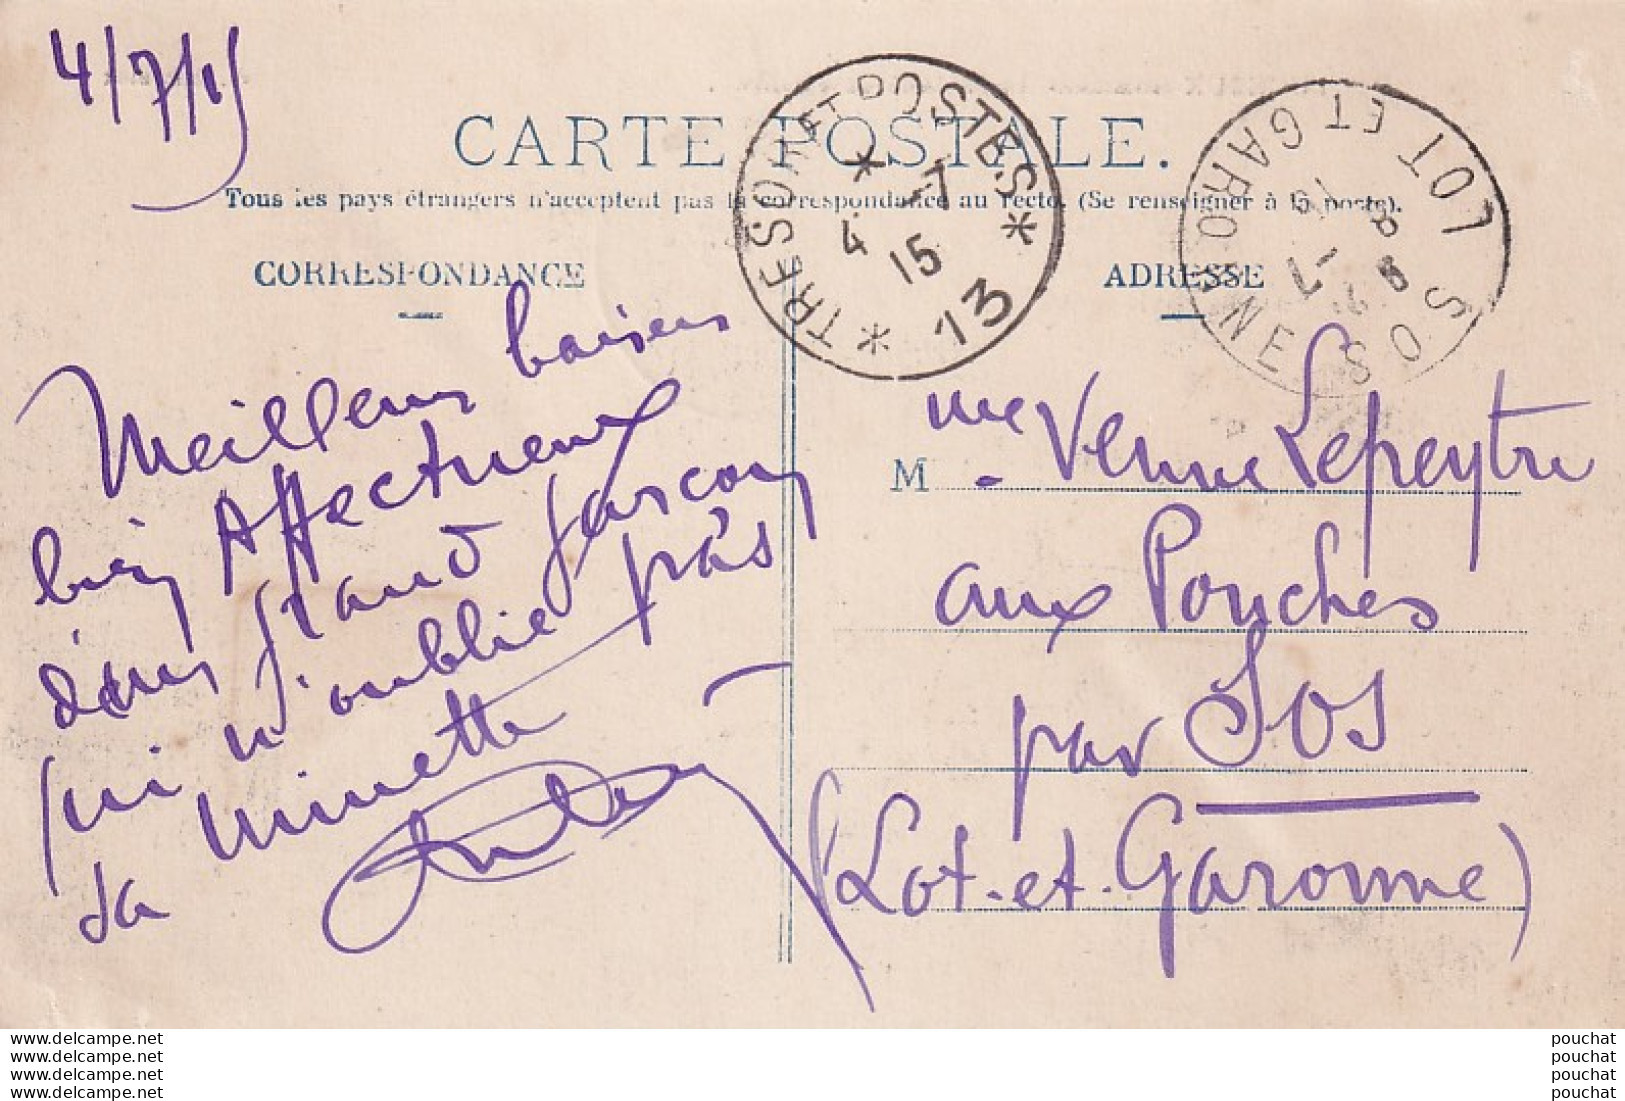 4/7/15
CARTE POSTALE.
Tous les pays étrangers n'acceptent pas la correspondance au recto. (Se renseigner à la poste).
CORRESPONDANCE
ADRESSE
TRESOR ET POSTES
4 -7
15
* 13 *
LOT ET GARONNE
SOS
Meilleurs baisers
bien Affectueux
d'un grand garçon
qui n'oublie pas
sa minette
M me Venne Lepeytre
aux Pouches
par Sos
(Lot-et-Garonne)
www.delcampe.net
www.delcampe.net
www.delcampe.net
www.delcampe.net
pouchat
pouchat
pouchat
pouchat